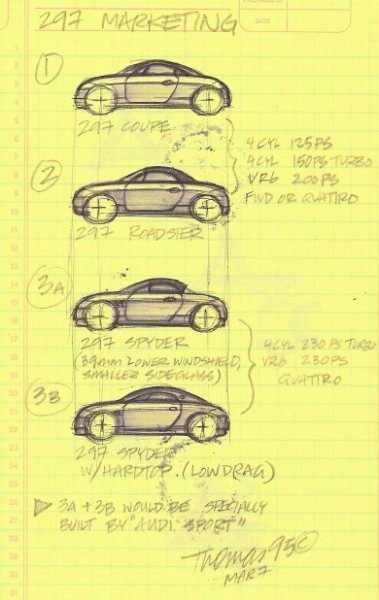 297 MARKETING
DATE
1
297 COUPE
4CYL 125PS
4CYL 150PS TURBO
VR6 200PS
FWD OR QUATTRO
2
297 ROADSTER
3A
297 SPYDER
(39mm LOWER WINDSHIELD,
SMALLER SIDEGLASS)
4CYL 230PS TURBO
VR6 230PS
QUATTRO
3B
297 SPYDER
W/HARDTOP. (LOW DRAG)
3A + 3B WOULD BE SPECIALLY
BUILT BY "AUDI SPORT"
Thomas 95©
MAR 7